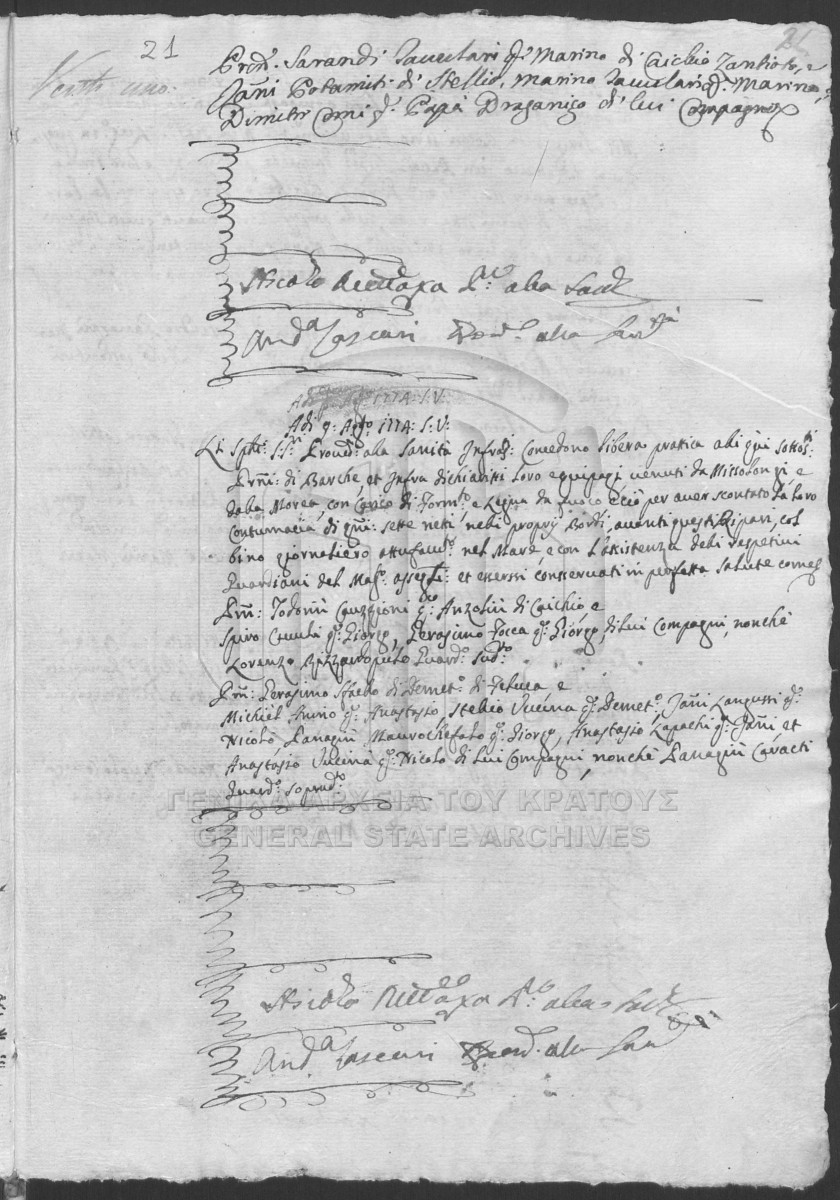 21
Vent: uno:
Prōn: Sarandi Tavulari q: Marino di Caichio Zantioto, e
Jani Potamiti di Stellio, Marino Tavulari q: Marino, e
Dimitri Comi q: Papà Draganigo di lui Compagni
Nicolò A: alla Sanità
And:a Lascari Proved: alla Sanità
Adi 9: Agto 1774: S:V:
Adi 9: Agto 1774: S:V:
Li Spti: SSri Proved: alla Sanità Infras: Concedono libera prattica alli qui sottos:
Prni: di Barche, et Infra dichiariti loro equipagi venuti da Missolongi, e
dalla Morea, con Carico di Formto e Legna da fuoco e ciò per aver scontato la loro
Contumacia di gni: sette neti nelli proprij Bordi, avanti questi Ripari, col
bino giornaliero attuffamto nel Mare, e con l'assistenza delli respetivi
Guardiani del Mag: assegti: et essersi conservati in perfetta salute come
Prn: Todorin q: Anzolin di Caichio e
Spiro q: Giorgo, Gerasimo Focca q: Giorgo, di lui Compagni, nonchè
Lorenzo Guard: sudto
Prn: Gerasimo Sfaelo di Demeto: di Feluca, e
Michiel Anino q: Anastasio, Stelio Vucina q: Demeto, Jani Langussi q:
Nicolò, Panagin Maurochefalo q: Giorgo, Anastasio Kapachi q: Jani, et
Anastasio Vucina q: Nicolò di lui Compagni, nonchè Panagin Cavacti
Guard: sopradto
ΓΕΝΙΚΑ ΑΡΧΕΙΑ ΤΟΥ ΚΡΑΤΟΥΣ
GENERAL STATE ARCHIVES
Nicolò A: alla Sanità
And:a Lascari Proved: alla Sanità